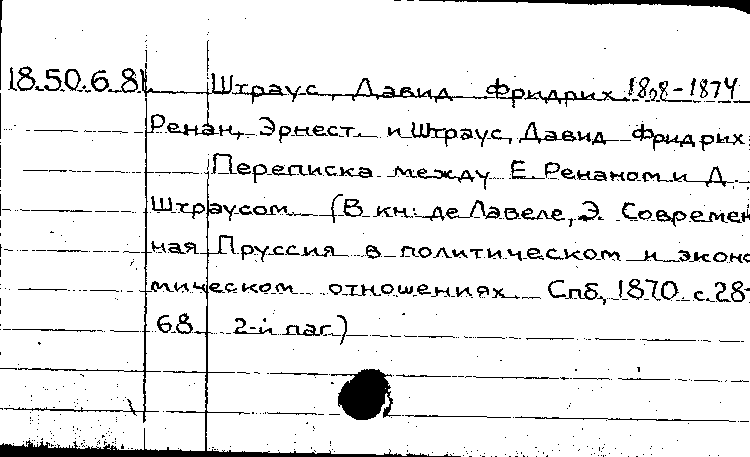 18.50.6.81. Штраус, Давид Фридрих 1808-1874
Ренан, Эрнест. и Штраус, Давид Фридрих.
Переписка между Е. Ренаном и Д.
Штраусом (В кн: де Лавеле, Э. Современ
ная Пруссия в политическом и эконо
мическом отношениях Спб, 1870 с. 28-
68. 2-й паг.)